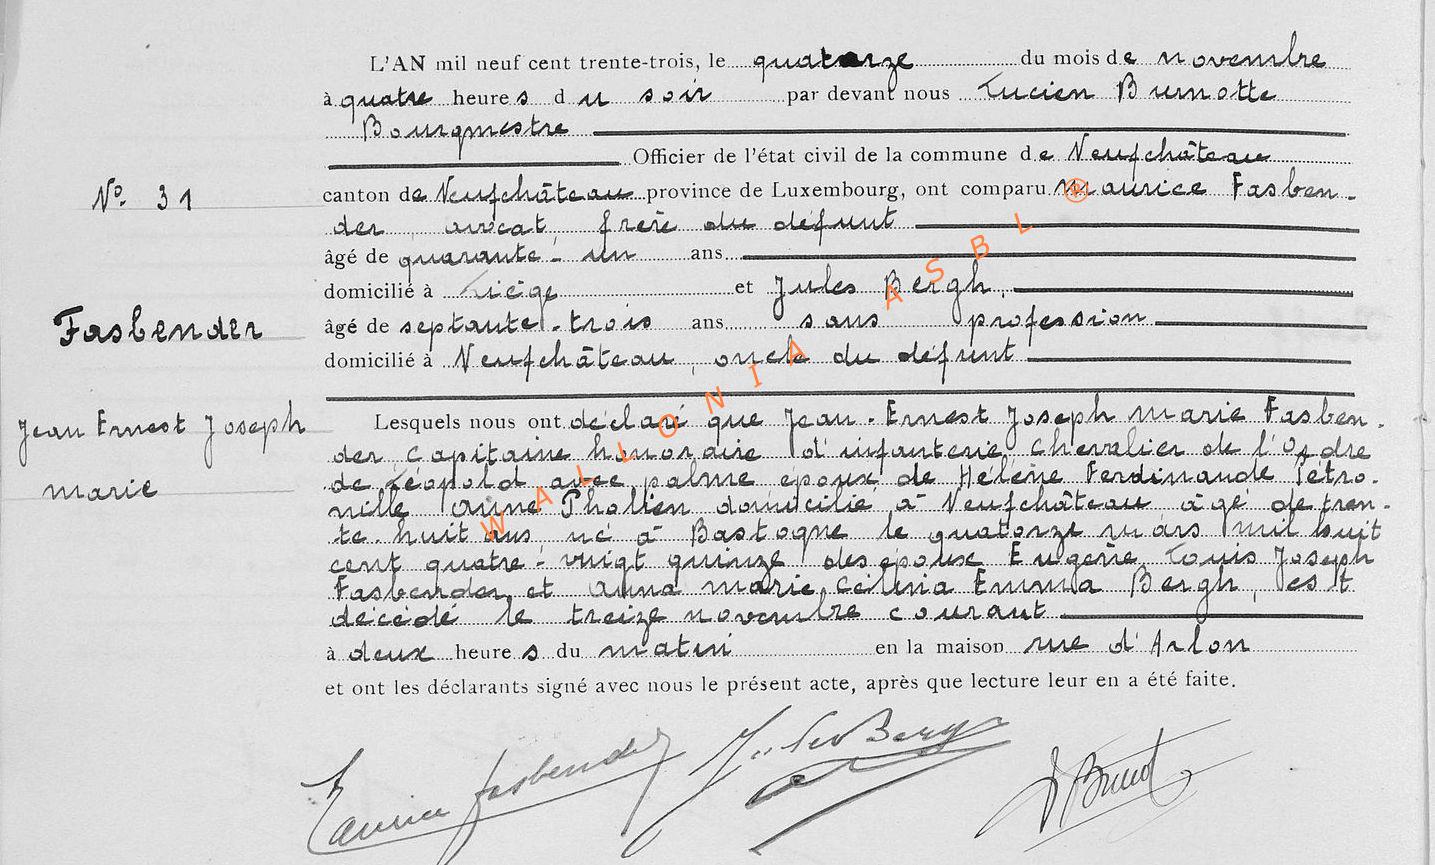 L'AN mil neuf cent trente-trois, le quatorze du mois de novembre
à quatre heures du soir par devant nous Lucien Burnotte
Bourgmestre
Officier de l'état civil de la commune de Neufchâteau
canton de Neufchâteau province de Luxembourg, ont comparu Maurice Fasben-
der, avocat, frère du défunt
âgé de quarante-un ans
domicilié à Liège et Jules Bergh,
âgé de septante-trois ans sans profession
domicilié à Neufchâteau, oncle du défunt
Lesquels nous ont déclaré que Jean-Ernest Joseph Marie Fasben-
der Capitaine honoraire d'infanterie Chevalier de l'Ordre
de Léopold avec palme époux de Hélène Ferdinande Pétro-
nille Anne Pholien domicilié à Neufchâteau âgé de tren-
te-huit ans né à Bastogne le quatorze mars mil huit
cent quatre-vingt quinze des époux Eugène Louis Joseph
Fasbender et Anna Marie Emma Bergh, est
décédé le treize novembre courant
à deux heures du matin en la maison rue d'Arlon
et ont les déclarants signé avec nous le présent acte, après que lecture leur en a été faite.
Maurice Fasbender Jules Bergh
No 31
Fasbender
Jean Ernest Joseph
Marie
WALLONIA ASBL ®